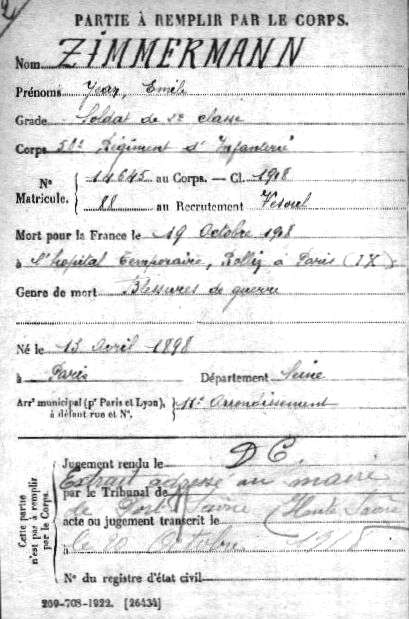 PARTIE À REMPLIR PAR LE CORPS.
Nom ZIMMERMANN
Prénoms Jean, Emile
Grade Soldat de 2e classe
Corps Régiment d'Infanterie
Nº Matricule. 14645 au Corps. — Cl. 1918
88 au Recrutement Vesoul
Mort pour la France le 19 Octobre 1918
à l'hopital temporaire, à Paris (IX)
Genre de mort Blessures de guerre
Né le 13 Avril 1898
à Paris Département Seine
Arrt municipal (pr Paris et Lyon), à défaut rue et Nº. 11e Arrondissement
Cette partie n'est pas à remplir par le Corps.
Jugement rendu le D C.
Extrait adressé au maire
par le Tribunal de
de Port s/ Saône (Haute Saône
acte ou jugement transcrit le
à le Octobre 1918
Nº du registre d'état civil
209-708-1922. [26434]